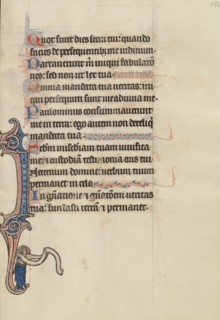 Quot sunt dies serui tui: quando
facies de persequentib; me iudicium.
Narrauerunt m iniqui fabulatio
nes: sed non ut lex tua
Omnia mandata tua ueritas: ini
qui persecuti sunt me adiuua me.
Paulominus consummauerunt
me in terra: ego autem non dereliqi
mandata tua.
Secdm misediam tuam uiuifica
me: et custodiam testimonia oris tui
In eternum domine: uerbum tuum
permanet in celo
In gnatione et gnatonem ueritas
tua: fundasti terra et permanet.